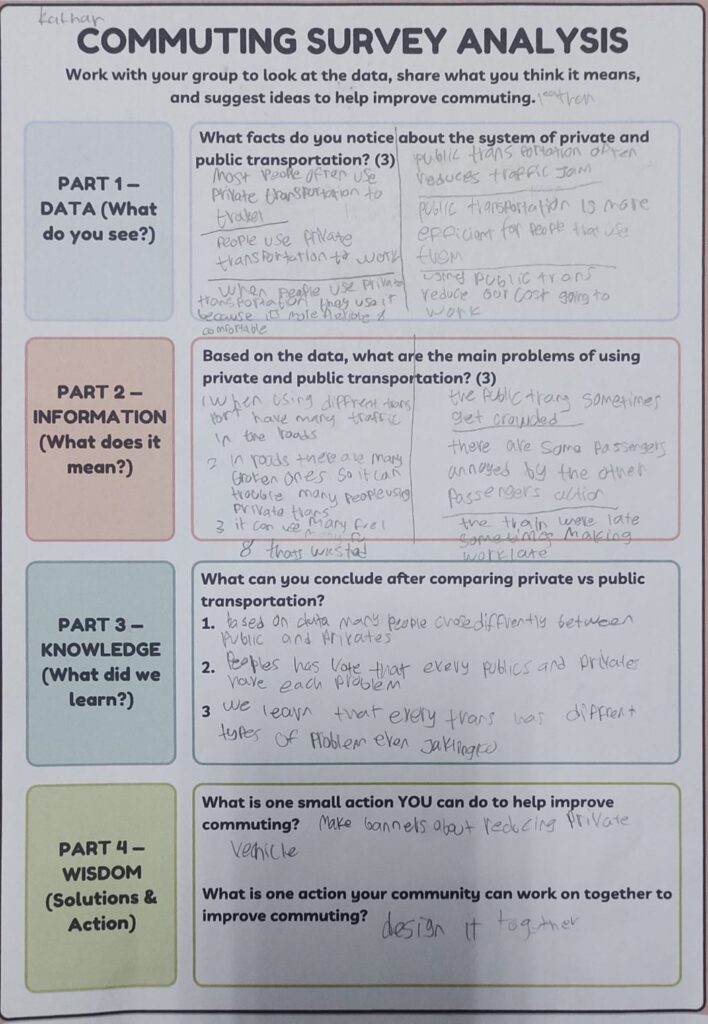 kathan
COMMUTING SURVEY ANALYSIS
Work with your group to look at the data, share what you think it means,
and suggest ideas to help improve commuting.
PART 1 –
DATA (What
do you see?)
What facts do you notice about the system of private and
public transportation? (3)
Most People often use
Private transportation to
travel
People use Private
transportation to work
When People use Private
transportation they use it
because it's more flexible &
comfortable
public transportation often
reduces traffic jam
public transportation is more
efficient for people that use
them
using public trans
reduce our cost going to
work
PART 2 –
INFORMATION
(What does it
mean?)
Based on the data, what are the main problems of using
private and public transportation? (3)
1 When using different trans
port have many traffic
in the roads
2 in roads there are many
broken ones so it can
trouble many people using
private trans
3 it can use many fuel
& thats wasted
the Public trans sometimes
get crowded
there are some passengers
annoyed by the other
passengers action
the train were late
sometimes making
work late
PART 3 –
KNOWLEDGE
(What did we
learn?)
What can you conclude after comparing private vs public
transportation?
1. based on data many people diffrently between
Public and Privates
2. Peoples has Vote that every publics and privates
have each Problem
3 we learn that every trans has diffrent
types of Problem even
PART 4 –
WISDOM
(Solutions &
Action)
What is one small action YOU can do to help improve
commuting? Make banners about reducing Private
vehicle
What is one action your community can work on together to
improve commuting? design it together